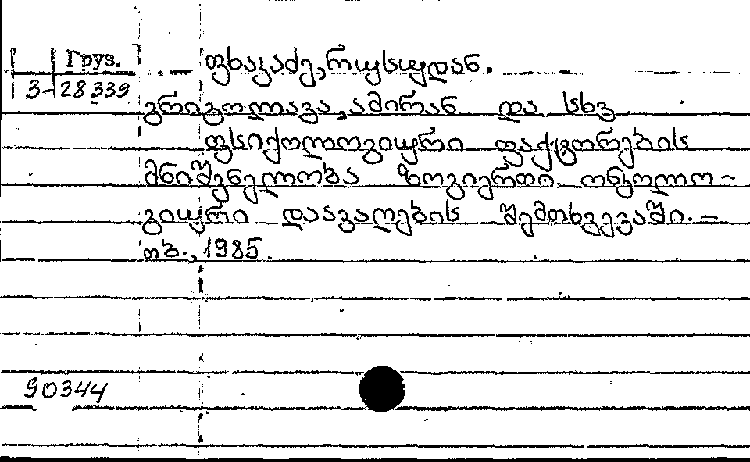 Груз. ფხაკაძე, რუსუდან.
3-28339
გრიგოლავა, ამირან და სხვ
ფსიქოლოგიური ფაქტორების
მნიშვნელობა ზოგიერთი ონკოლო-
გიური დაავადების შემთხვევაში. —
თბ., 1985.
90344